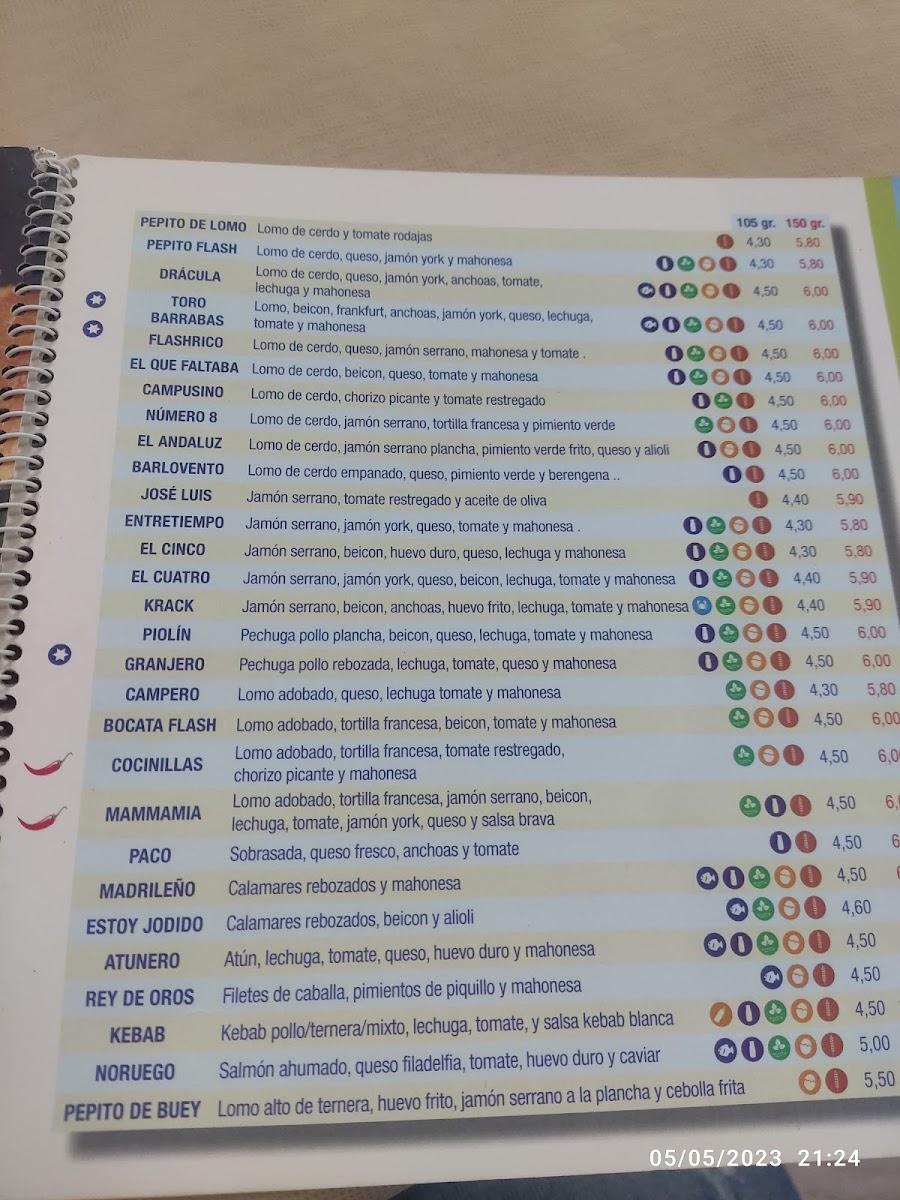 105 gr. 150 gr.
PEPITO DE LOMO Lomo de cerdo y tomate rodajas 4,30 5,80
PEPITO FLASH Lomo de cerdo, queso, jamón york y mahonesa 4,30 5,80
DRÁCULA Lomo de cerdo, queso, jamón york, anchoas, tomate,
lechuga y mahonesa 4,50 6,00
TORO
BARRABAS Lomo, beicon, frankfurt, anchoas, jamón york, queso, lechuga,
tomate y mahonesa 4,50 6,00
FLASHRICO Lomo de cerdo, queso, jamón serrano, mahonesa y tomate . 4,50 6,00
EL QUE FALTABA Lomo de cerdo, beicon, queso, tomate y mahonesa 4,50 6,00
CAMPUSINO Lomo de cerdo, chorizo picante y tomate restregado 4,50 6,00
NÚMERO 8 Lomo de cerdo, jamón serrano, tortilla francesa y pimiento verde 4,50 6,00
EL ANDALUZ Lomo de cerdo, jamón serrano plancha, pimiento verde frito, queso y alioli 4,50 6,00
BARLOVENTO Lomo de cerdo empanado, queso, pimiento verde y berengena .. 4,50 6,00
JOSÉ LUIS Jamón serrano, tomate restregado y aceite de oliva 4,40 5,90
ENTRETIEMPO Jamón serrano, jamón york, queso, tomate y mahonesa . 4,30 5,80
EL CINCO Jamón serrano, beicon, huevo duro, queso, lechuga y mahonesa 4,30 5,80
EL CUATRO Jamón serrano, jamón york, queso, beicon, lechuga, tomate y mahonesa 4,40 5,90
KRACK Jamón serrano, beicon, anchoas, huevo frito, lechuga, tomate y mahonesa 4,40 5,90
PIOLÍN Pechuga pollo plancha, beicon, queso, lechuga, tomate y mahonesa 4,50 6,00
GRANJERO Pechuga pollo rebozada, lechuga, tomate, queso y mahonesa 4,50 6,00
CAMPERO Lomo adobado, queso, lechuga tomate y mahonesa 4,30 5,80
BOCATA FLASH Lomo adobado, tortilla francesa, beicon, tomate y mahonesa 4,50 6,00
COCINILLAS Lomo adobado, tortilla francesa, tomate restregado,
chorizo picante y mahonesa 4,50 6,0
MAMMAMIA Lomo adobado, tortilla francesa, jamón serrano, beicon,
lechuga, tomate, jamón york, queso y salsa brava 4,50 6,
PACO Sobrasada, queso fresco, anchoas y tomate 4,50 6
MADRILEÑO Calamares rebozados y mahonesa 4,50
ESTOY JODIDO Calamares rebozados, beicon y alioli 4,60
ATUNERO Atún, lechuga, tomate, queso, huevo duro y mahonesa 4,50
REY DE OROS Filetes de caballa, pimientos de piquillo y mahonesa 4,50
KEBAB Kebab pollo/ternera/mixto, lechuga, tomate, y salsa kebab blanca 4,50
NORUEGO Salmón ahumado, queso filadelfia, tomate, huevo duro y caviar 5,00
PEPITO DE BUEY Lomo alto de ternera, huevo frito, jamón serrano a la plancha y cebolla frita 5,50
05/05/2023 21:24